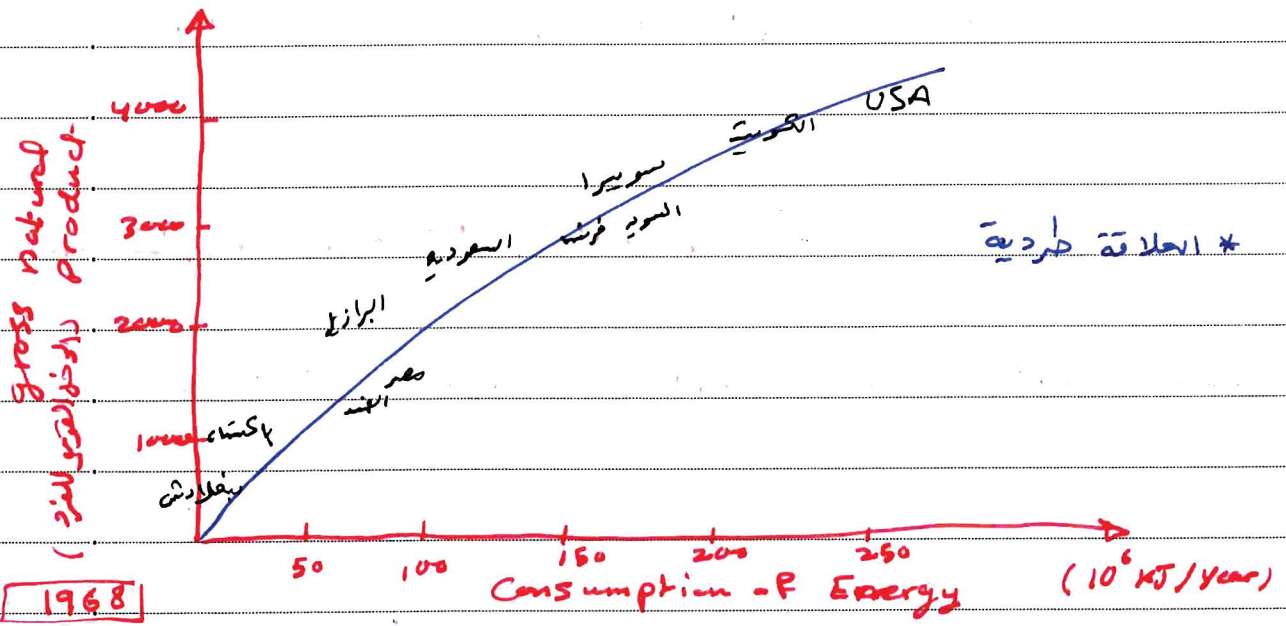 4000
3000
2000
1000
gross natural
product
(الدخل القومي للفرد)
USA
الكويت
سويسرا
السويد فرنسا
السعودية
البرازيل
مصر
الهند
باكستان
بنغلادش
* العلاقة طردية
50 100 150 200 250
Consumption of Energy (10⁶ KJ/year)
1968